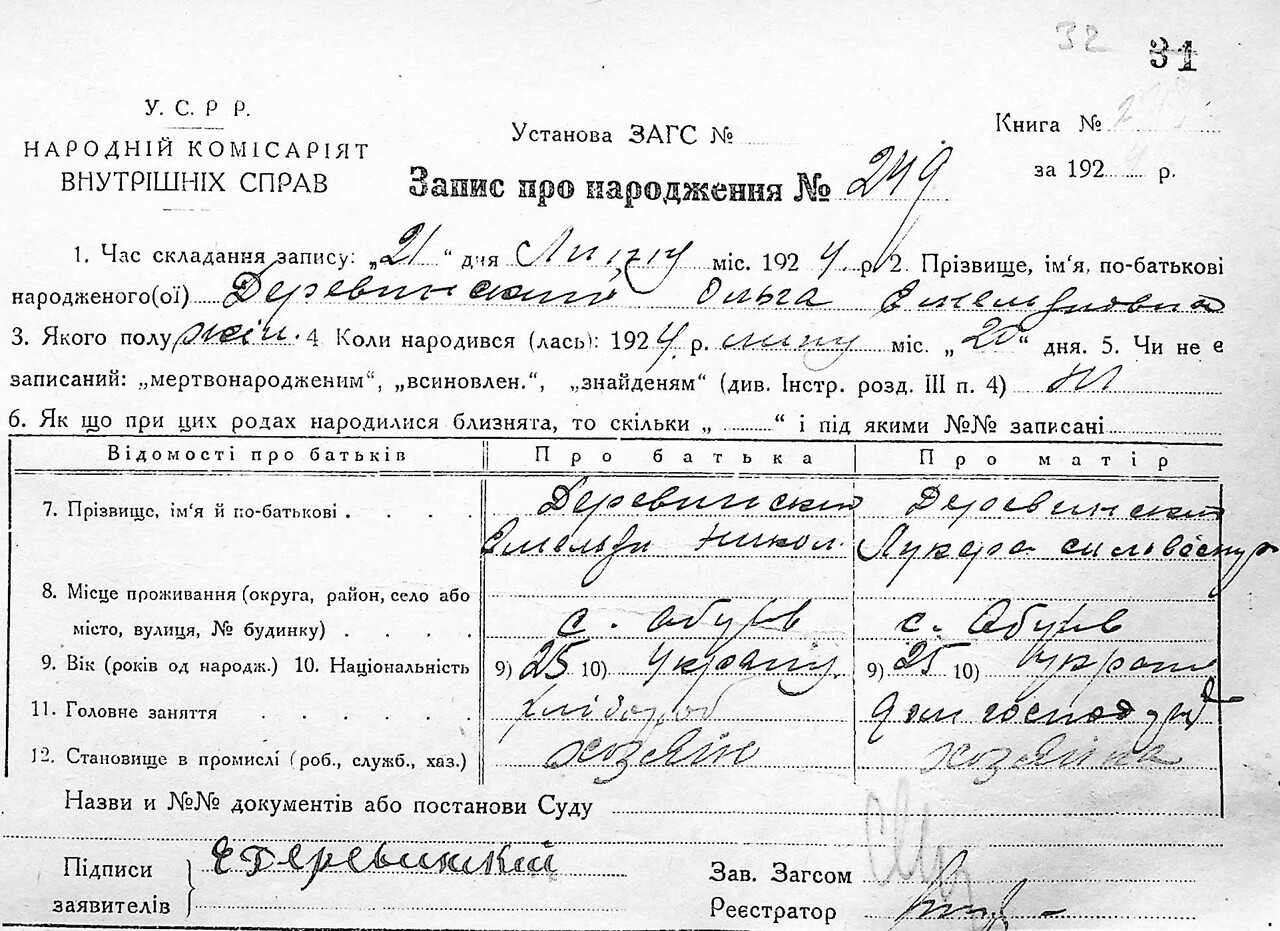 32 31
У. С. Р Р.
НАРОДНІЙ КОМІСАРІЯТ
ВНУТРІШНІХ СПРАВ
Установа ЗАГС №
Книга №
за 1924 р.
Запис про народження № 249
1. Час складання запису: „21“ дня Липцу міс. 1924 р. 2. Прізвище, ім'я, по-батькові
народженого(ої) Деревинский Ольга Емельяновна
3. Якого полу жін. 4 Коли народився (лась): 1924 р. липцу міс. „20“ дня. 5. Чи не є
записаний: „мертвонародженим“, „всиновлен.“, „знайденям“ (див. Інстр. розд. III п. 4) ні
6. Як що при цих родах народилися близнята, то скільки „ “ і під якими №№ записані
Відомості про батьків Про батька Про матір
7. Прізвище, ім'я й по-батькові Деревинский Деревинский
Емельян Никол. Лукера
8. Місце проживання (округа, район, село або
місто, вулиця, № будинку) с. Абухів с. Абухів
9. Вік (років од народж.) 10. Національність 9) 25 10) Україну. 9) 25 10) україн
11. Головне заняття хлібороб дом господар
12. Становище в промислі (роб., служб., хаз.) хозяїн хозяїнка
Назви и №№ документів або постанови Суду
Підписи
заявителів
Е Деревинский
Зав. Загсом
Реєстратор